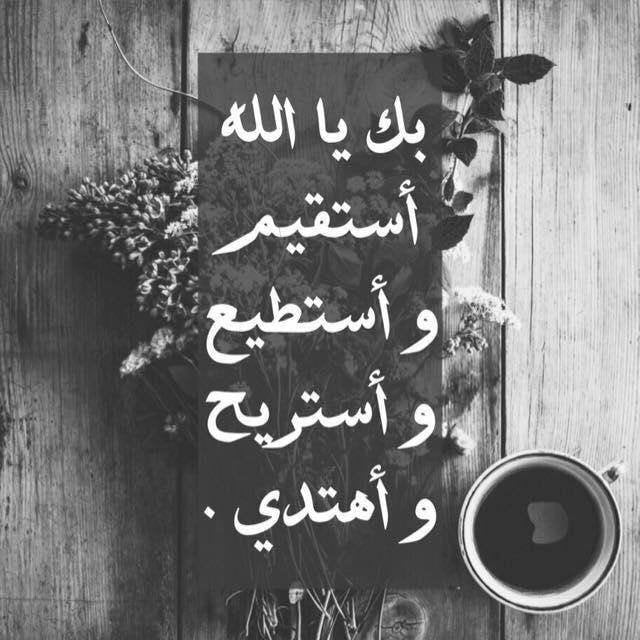 بك يا الله
أستقيم
و أستطيع
و أستريح
و أهتدي .